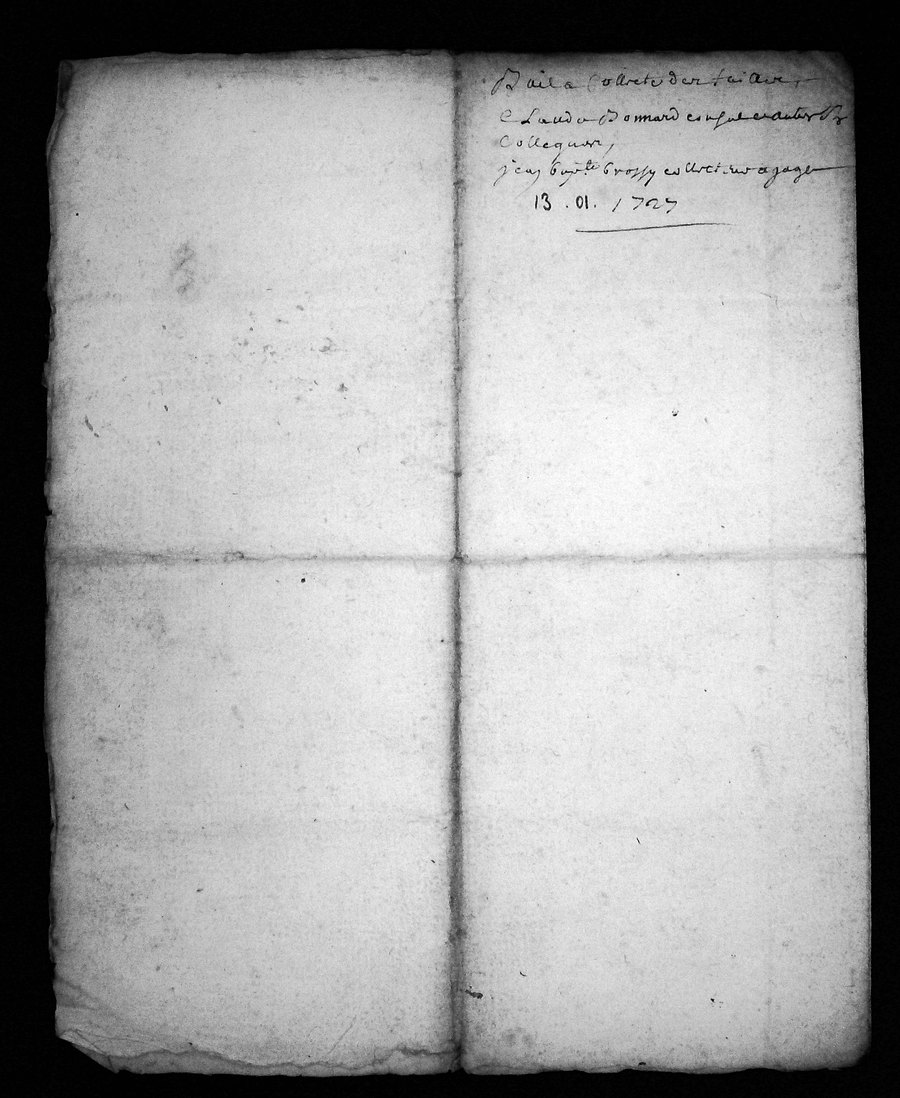 Bail a Collecte des tailles,
Claude Bonnard consul et autres
Collegues,
jean bap.te brossy collecteur a gage
13 . 01 . 1727